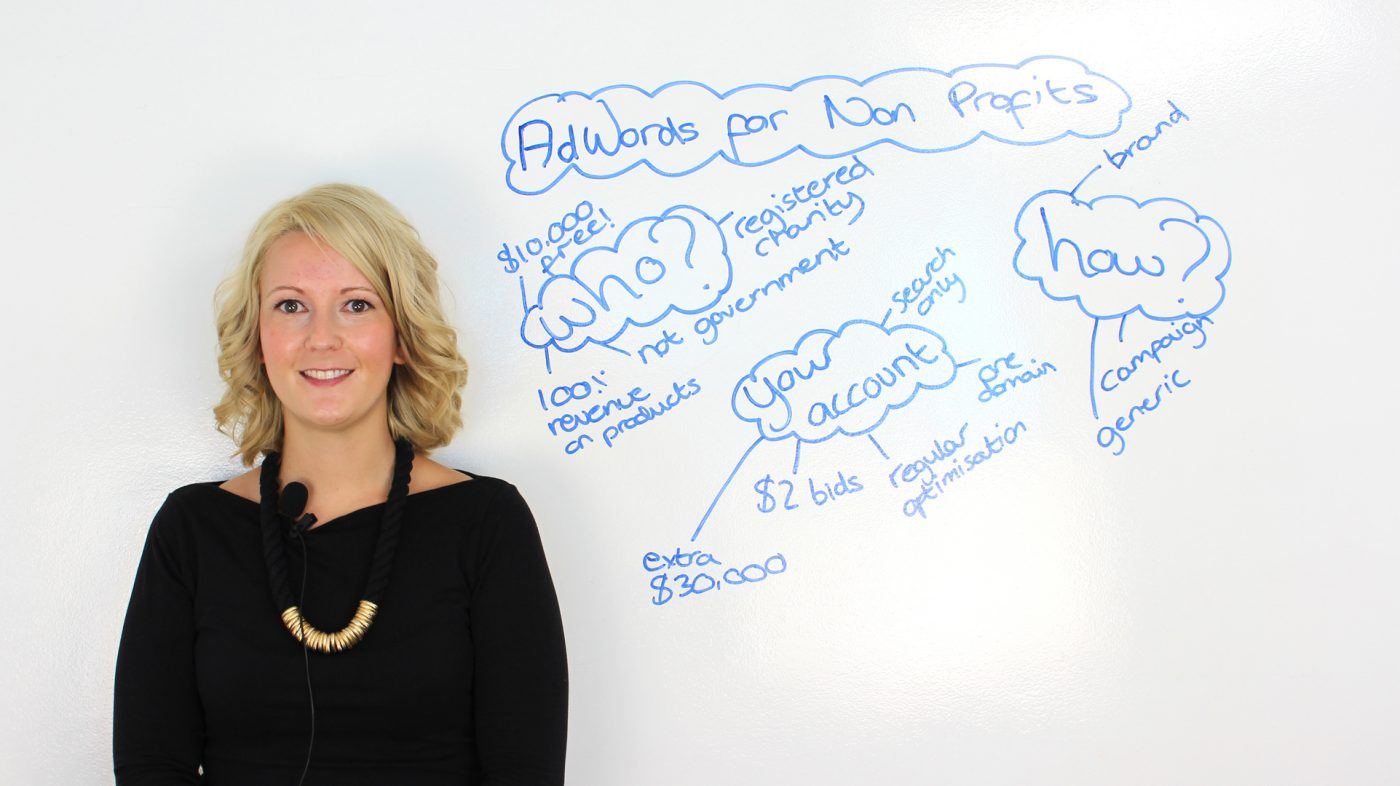 AdWords for Non Profits
$10,000
free!
who?
registered
charity
not government
100%
revenue
on products
your
account
search
only
one
domain
regular
optimisation
$2 bids
extra
$30,000
how?
brand
campaign
generic